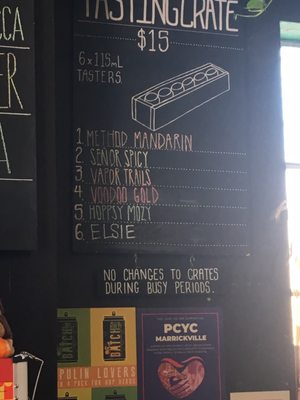 TASTING CRATE
$15
6 x 115mL
TASTERS.
1. METHOD MANDARIN
2. SENOR SPICY
3. VAPOR TRAILS
4. VOODOO GOLD
5. HOPPSY MOZY
6. ELSIE
NO CHANGES TO CRATES
DURING BUSY PERIODS.
CCA
ER
A
BATCH
BATCH
PULIN LOVERS
A PACK FOR HOP HEADS
PCYC
MARRICKVILLE